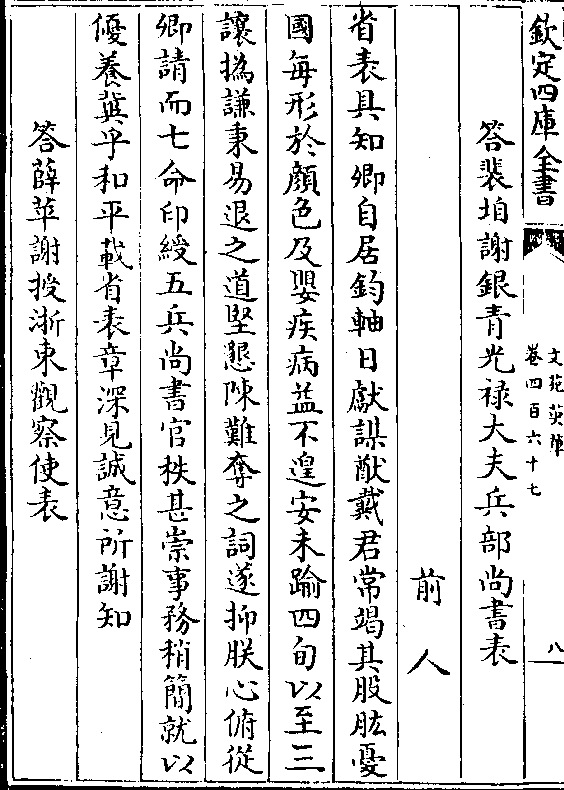 欽定四庫全書
文苑英華
卷四百六十七
八
答裴垍謝銀青光禄大夫兵部尚書表
前人
省表具知卿自居鈞軸日獻謀猷戴君常竭其股肱憂
國每形於顔色及嬰疾病益不遑安未踰四旬以至三
讓撝謙秉易退之道堅懇陳難奪之詞遂抑朕心俯從
卿請而七命印綬五兵尚書官秩甚崇事務稍簡就以
優養冀乎和平載省表章深見誠意所謝知
答薛苹謝授浙東觀察使表